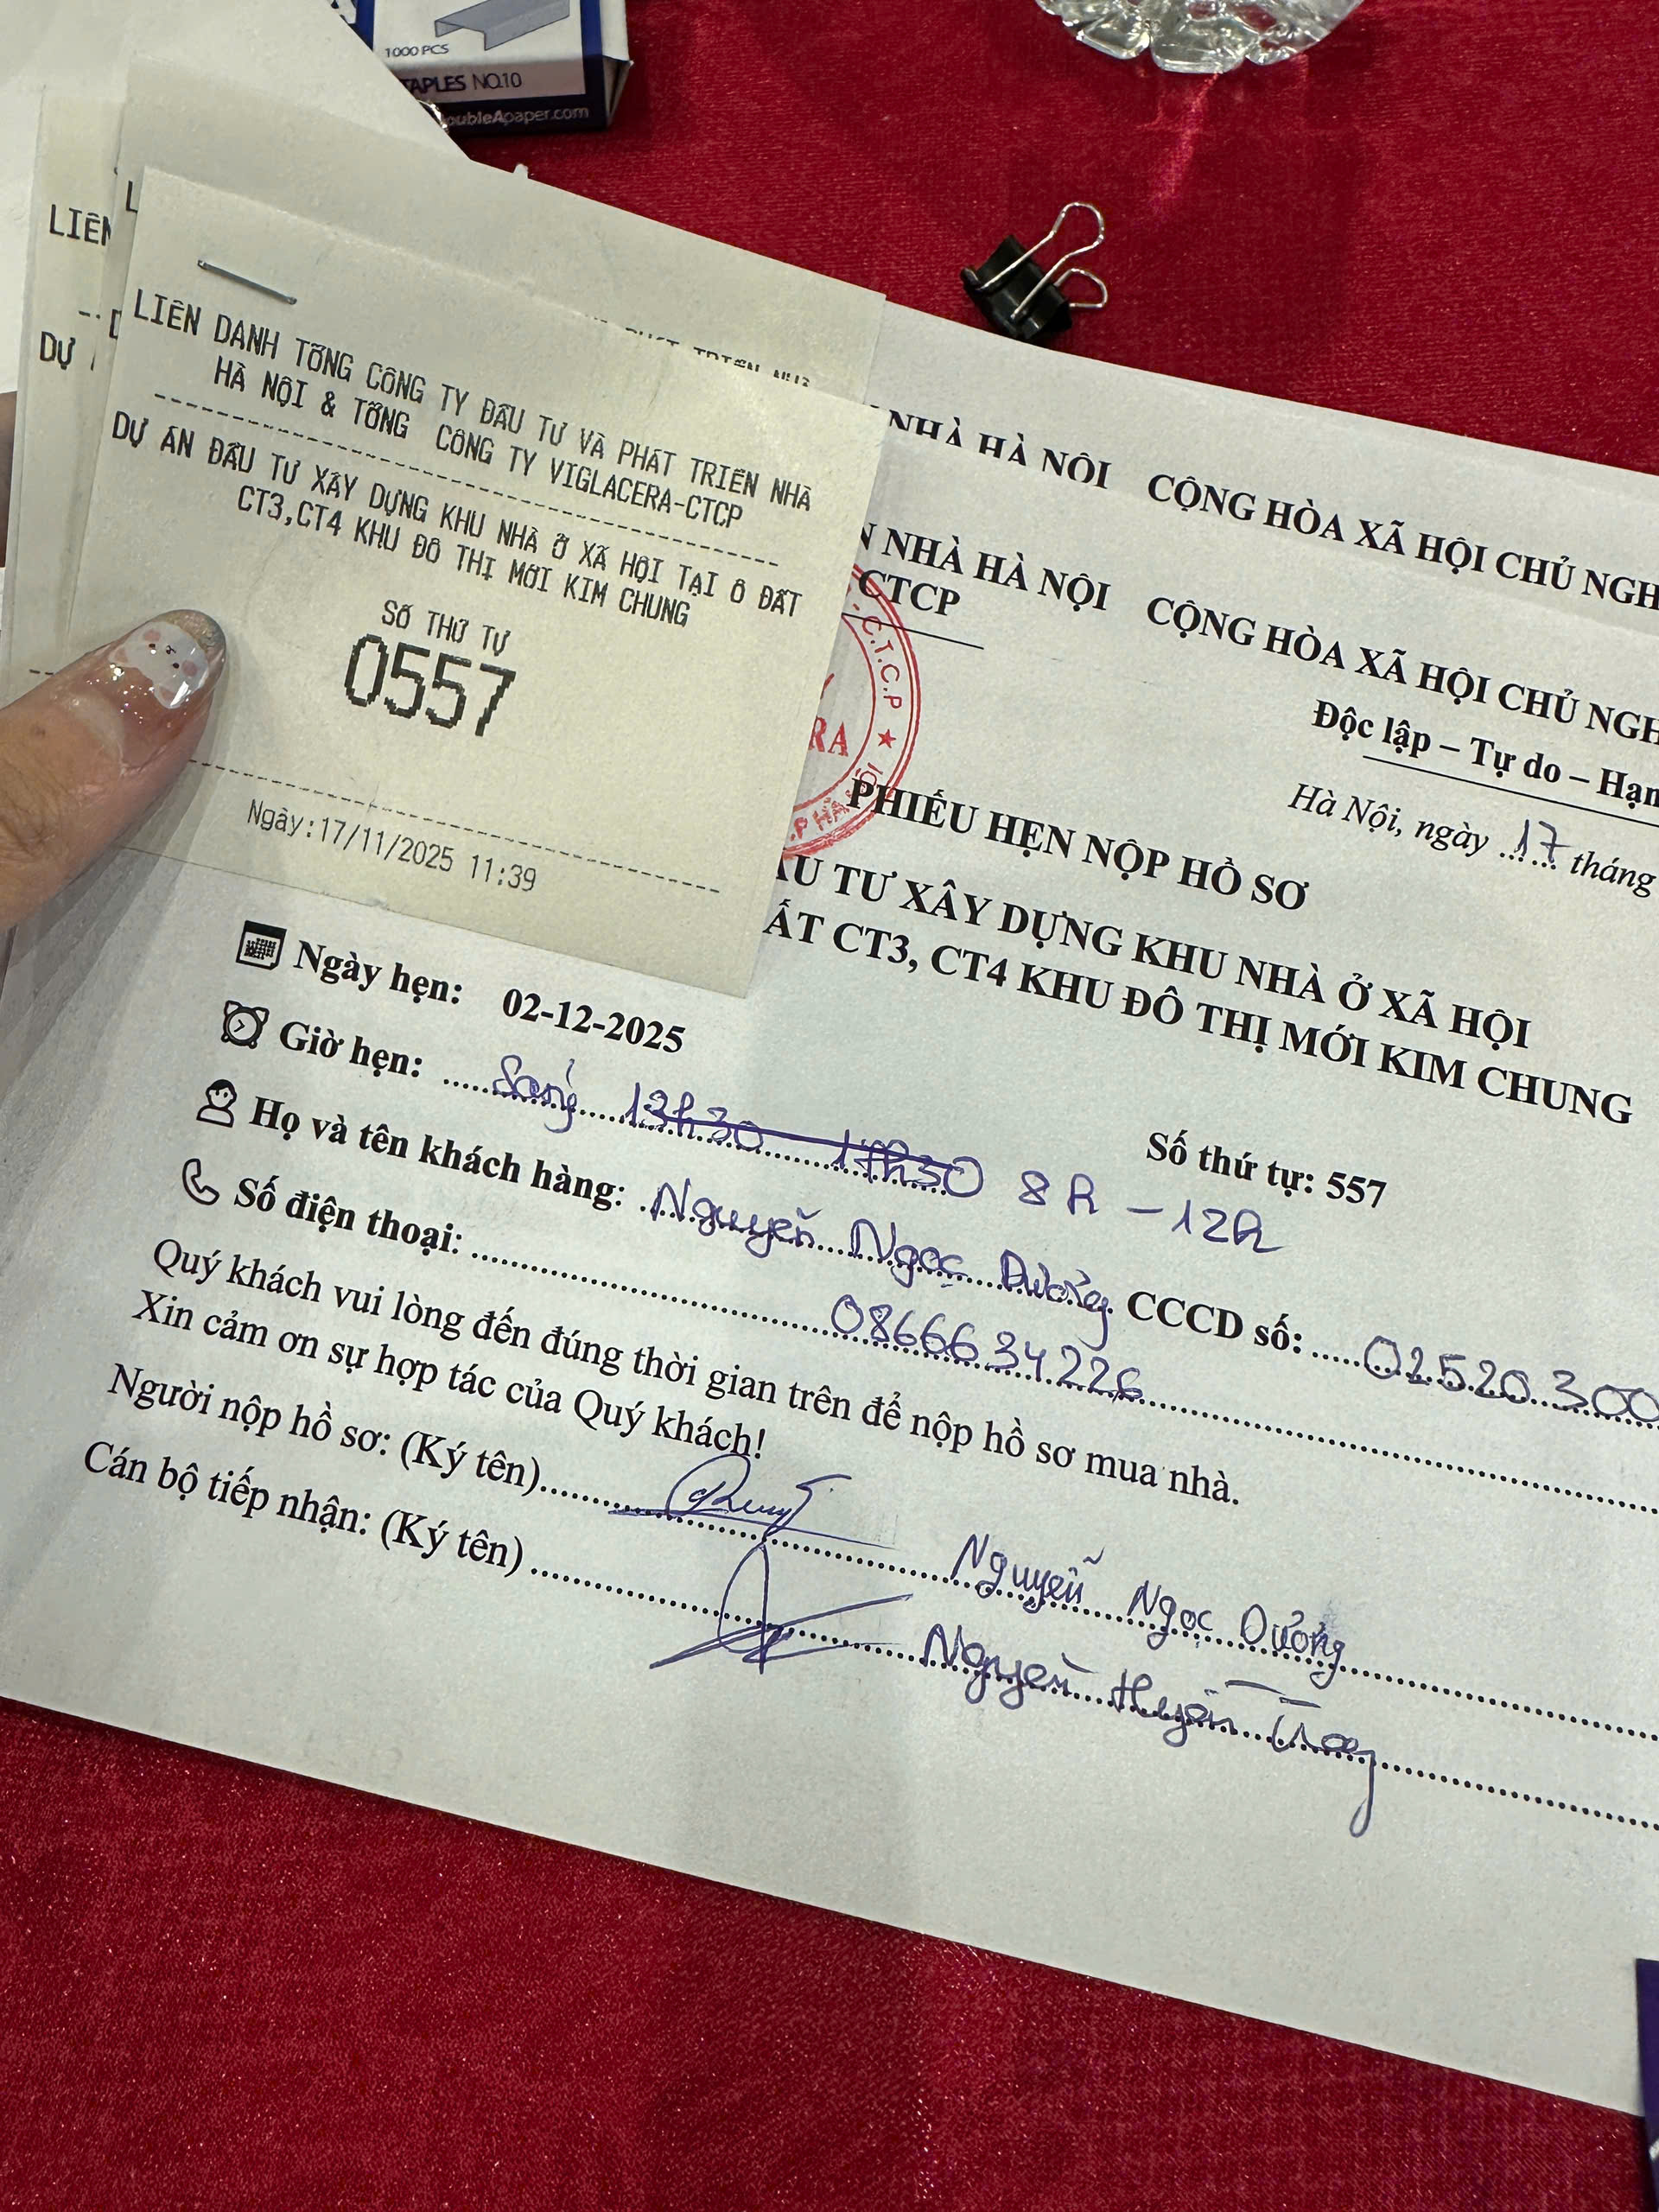 1000 PCS
TAPLES NO.10
oubleApaper.com
LIÊN
DỰ
LIÊN DANH TỔNG CÔNG TY ĐẦU TƯ VÀ PHÁT TRIỂN NHÀ
HÀ NỘI & TỔNG CÔNG TY VIGLACERA-CTCP
DỰ ÁN ĐẦU TƯ XÂY DỰNG KHU NHÀ Ở XÃ HỘI TẠI Ô ĐẤT
CT3,CT4 KHU ĐÔ THỊ MỚI KIM CHUNG
SỐ THỨ TỰ
0557
Ngày:17/11/2025 11:39
NHÀ HÀ NỘI CỘNG HÒA XÃ HỘI CHỦ NGH
NHÀ HÀ NỘI CỘNG HÒA XÃ HỘI CHỦ NGH
CTCP
Độc lập – Tự do – Hạn
C.T.C.P ★
RA
Hà Nội, ngày 17 tháng
PHIẾU HẸN NỘP HỒ SƠ
ẦU TƯ XÂY DỰNG KHU NHÀ Ở XÃ HỘI
ẤT CT3, CT4 KHU ĐÔ THỊ MỚI KIM CHUNG
Ngày hẹn: 02-12-2025
Số thứ tự: 557
Giờ hẹn: Sáng 13h30 17h30 8h - 12h
Họ và tên khách hàng: Nguyễn Ngọc Dưỡng CCCD số: 01520300
Số điện thoại: 0866634226
Quý khách vui lòng đến đúng thời gian trên để nộp hồ sơ mua nhà.
Xin cảm ơn sự hợp tác của Quý khách!
Người nộp hồ sơ: (Ký tên) Nguyễn Ngọc Dưỡng
Cán bộ tiếp nhận: (Ký tên) Nguyễn Huyền Trang